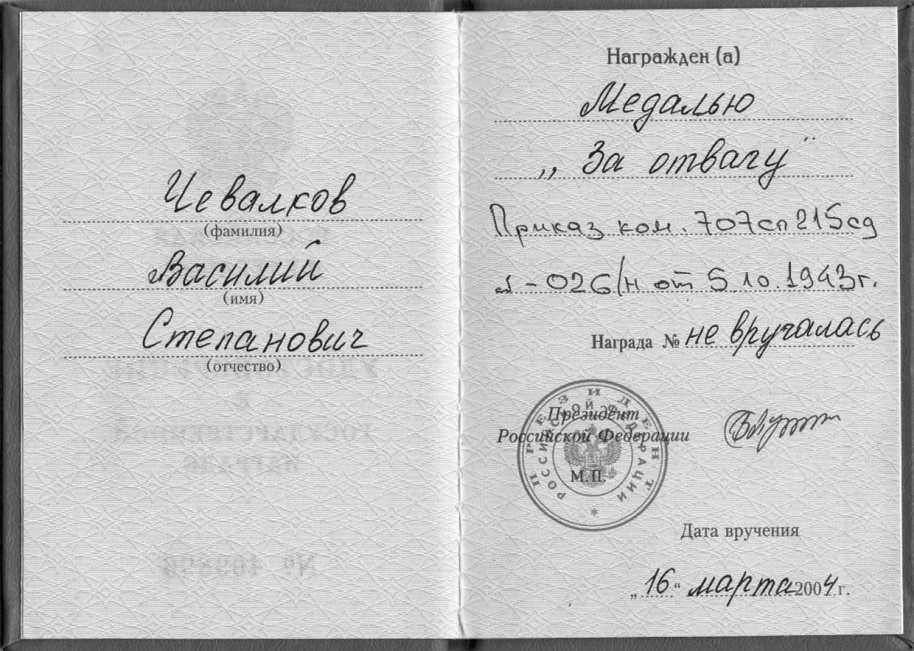 Чевалков
(фамилия)
Василий
(имя)
Степанович
(отчество)
Награжден (а)
Медалью
„ За отвагу "
Приказ ком. 707сп 215сд
026/н от 5.10.1943г.
Награда № не вручалась
Президент
Российской Федерации
М.П.
ПРЕЗИДЕНТ
РОССИЙСКОЙ ФЕДЕРАЦИИ
Дата вручения
„ 16 “ марта 2004 г.